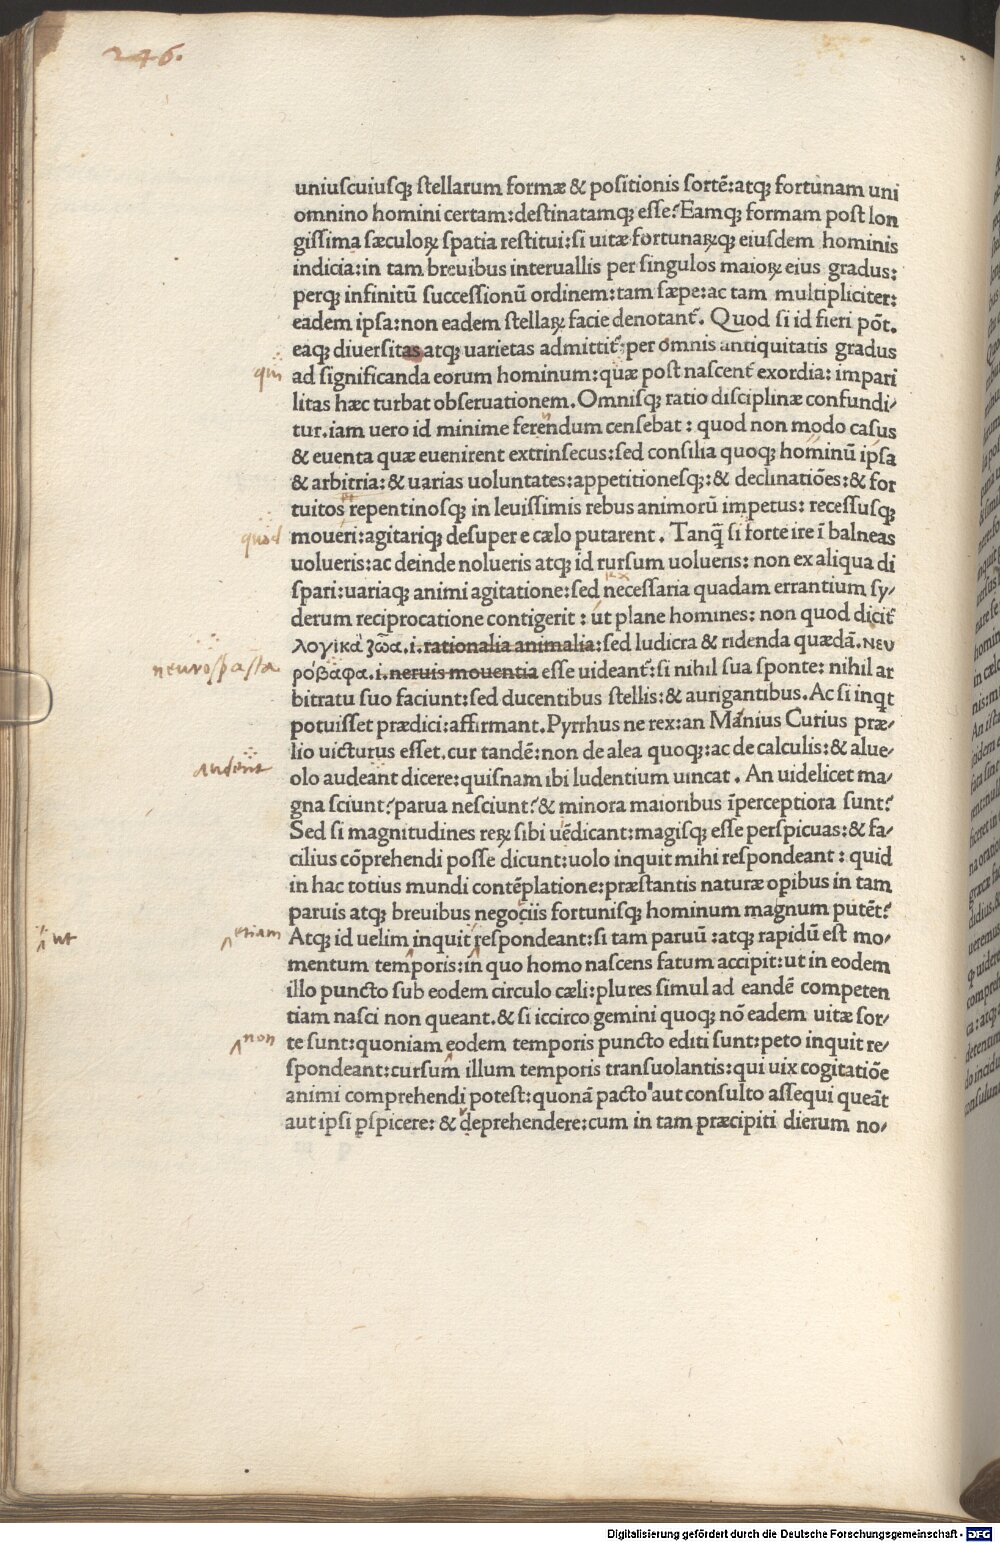 246.
uniuſcuiuſqꝫ ſtellarum formæ & poſitionis ſortē:atqꝫ fortunam uni
omnino homini certam:deſtinatamqꝫ eſſe?Eamqꝫ formam poſt lon
giſſima ſæculoꝝ ſpatia reſtitui:ſi uitæ fortunaꝝqꝫ eiuſdem hominis
indicia:in tam breuibus interuallis per ſingulos maioꝝ eius gradus:
perqꝫ infinitū ſucceſſionū ordinem:tam ſæpe:ac tam multipliciter:
eadem ipſa:non eadem ſtellaꝝ facie denotant̃. Quod ſi id fieri põt.
eaqꝫ diuerſitas atqꝫ uarietas admittit̃:per omnis antiquitatis gradus
qui
ad ſignificanda eorum hominum:quæ poſt naſcent̃ exordia: impari
litas hæc turbat obſeruationem.Omniſqꝫ ratio diſciplinæ confundi/
tur.iam uero id minime ferendum cenſebat : quod non modo caſus
& euenta quæ euenirent extrinſecus:ſed conſilia quoqꝫ hominū ipſa
& arbitria:& uarias uoluntates:appetitioneſqꝫ:& declinatiōes:& for
tuitos repentinoſqꝫ in leuiſſimis rebus animorū impetus: receſſuſqꝫ
quod
moueri:agitariqꝫ deſuper e cælo putarent . Tanq̃ ſi forte ire ī balneas
uolueris:ac deinde nolueris atqꝫ id rurſum uolueris: non ex aliqua di
ſpari:uariaqꝫ animi agitatione:ſed neceſſaria quadam errantium ſy/
derum reciprocatione contigerit : ut plane homines: non quod dicit̃
λογικὰ ζῶα.i.rationalia animalia:ſed ludicra & ridenda quædā.νευ
neurospasta
ρόβαφα.i.neruis mouentia eſſe uideant̃:ſi nihil ſua ſponte: nihil ar
bitratu ſuo faciunt:ſed ducentibus ſtellis:& aurigantibus.Ac ſi inqt
potuiſſet prædici:affirmant.Pyrrhus ne rex:an Manius Curius præ/
lio uicturus eſſet.cur tandē:non de alea quoqꝫ:ac de calculis:& alue/
audent
olo audeant dicere:quiſnam ibi ludentium uincat . An uidelicet ma/
gna ſciunt?parua neſciunt?& minora maioribus īperceptiora ſunt?
Sed ſi magnitudines reꝝ ſibi uēdicant:magiſqꝫ eſſe perſpicuas:& fa/
cilius cōprehendi poſſe dicunt:uolo inquit mihi reſpondeant : quid
in hac totius mundi contēplatione:præſtantis naturæ opibus in tam
paruis atqꝫ breuibus negociis fortuniſqꝫ hominum magnum putēt?
ut
etiam
Atqꝫ id uelim inquit reſpondeant:ſi tam paruū :atqꝫ rapidū eſt mo/
mentum temporis:in quo homo naſcens fatum accipit:ut in eodem
illo puncto ſub eodem circulo cæli:plures ſimul ad eandē competen
tiam naſci non queant.& ſi iccirco gemini quoqꝫ nō eadem uitæ ſor/
non
te ſunt:quoniam eodem temporis puncto editi ſunt:peto inquit re/
ſpondeant:curſum illum temporis tranſuolantis:qui uix cogitatiōe
animi comprehendi poteſt:quonā pacto aut conſulto aſſequi queāt
aut ipſi ꝑſpicere: & deprehendere:cum in tam præcipiti dierum no/
Digitalisierung gefördert durch die Deutsche Forschungsgemeinschaft - DFG